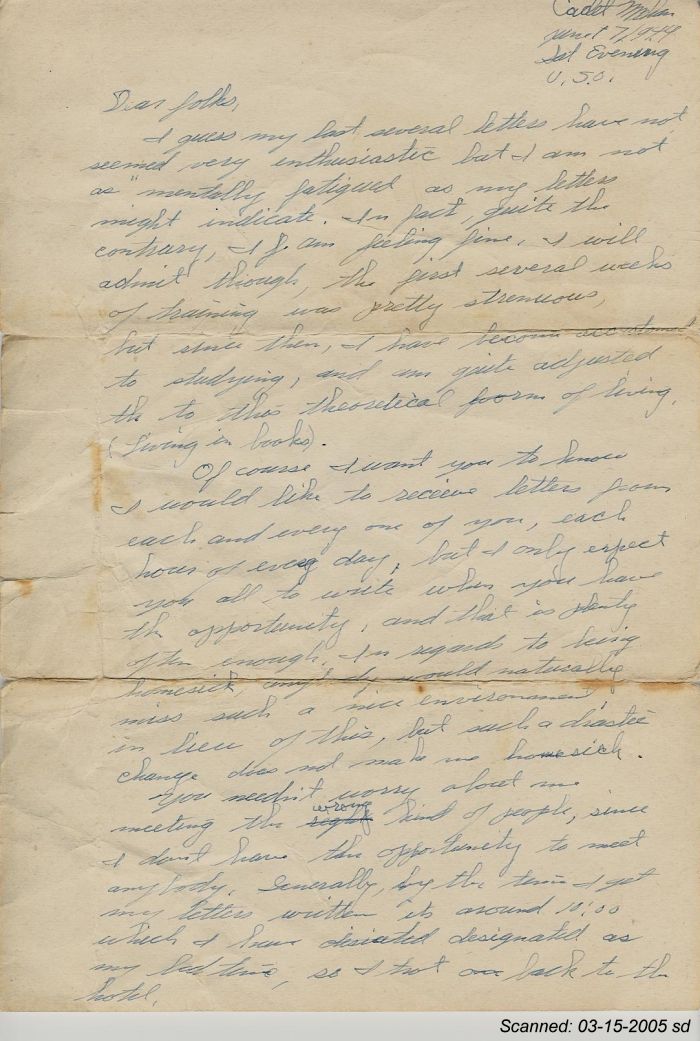 Cadet
June 17, 1944
Sat Evening
U.S.O.
Dear folks,
I guess my last several letters have not
seemed very enthusiastic but I am not
as "mentally fatigued as my letters
might indicate. In fact, quite the
contrary, I am feeling fine. I will
admit though, the first several weeks
of training was pretty strenuous,
but since then, I have become accustomed
to studying, and am quite adjusted
th to this theoretical form of living.
(Living in books).
Of course I want you to know
I would like to recieve letters from
each and every one of you, each
hour of every day, but I only expect
you all to write when you have
the opportunity, and that is plenty
often enough. In regards to being
homesick, anybody would naturally
miss such a nice environment,
in lieu of this, but such a drastic
change does not make me homesick.
You needn't worry about me
meeting the right wrong kind of people, since
I don't have the opportunity to meet
anybody. Generally, by the time I get
my letters written its around 10:00
which I have designated as
my bed time, so I trot back to the
hotel.
Scanned: 03-15-2005 sd